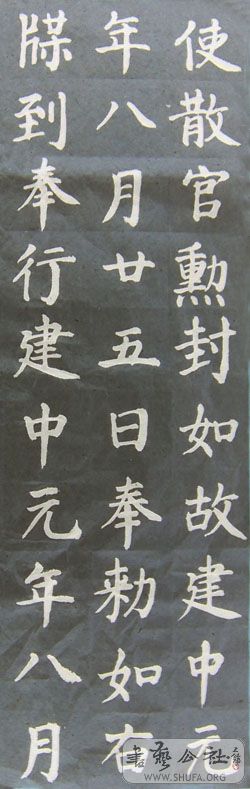 使散官勲封如故建中元
年八月廿五日奉勑如右
牒到奉行建中元年八月
書藝公社
WWW.SHUFA.ORG